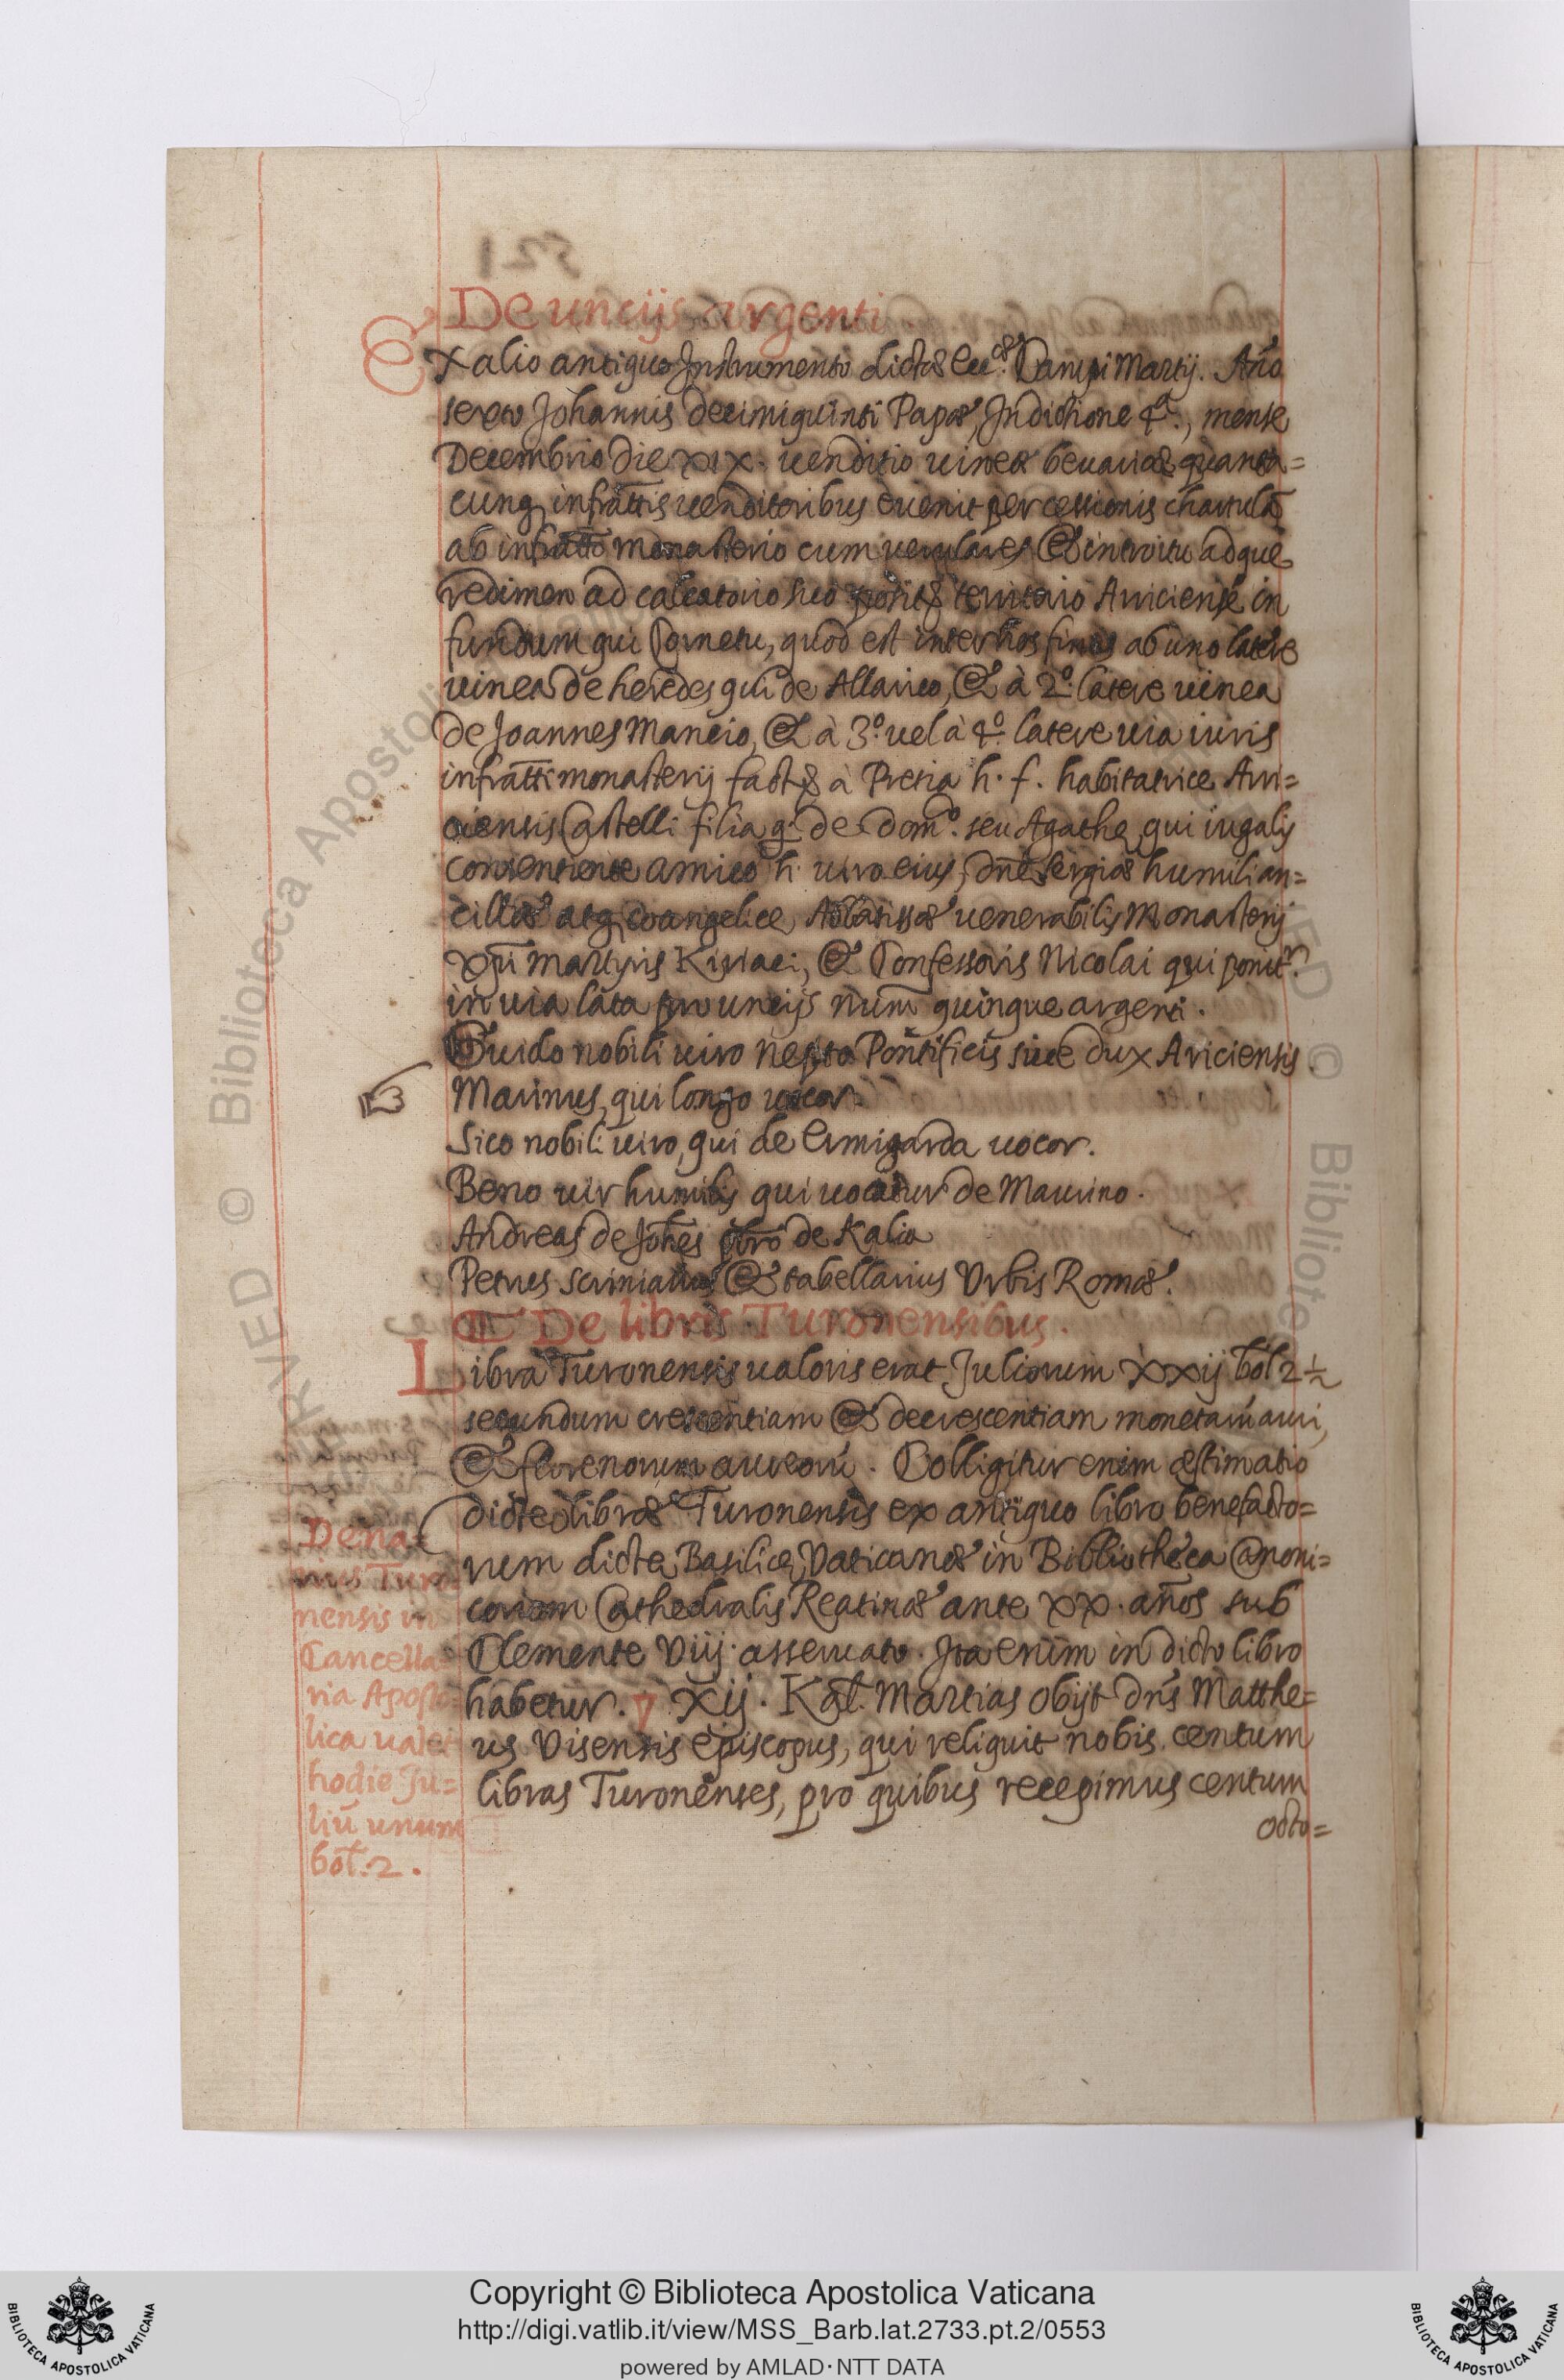 De uncijs argenti
Ex alio antiquo Instrumento dictæ Ecc.æ Campi Martij. Año
sexto Johannis decimiquinti Papæ, Indictione 4.ª, mense
Decembrio die XIX. venditio vineæ
cunq infratis venditoribus evenit per cessionis chartulã
ab infratto monasterio cum & introitu
ad calcatorio suo posit territorio Ariciense in
fundum qui Cornetu, quod est inter hos fines ab uno latere
vinea de heredes qui de Allarico, & à 2.º latere vinea
de Joannes Mancio, & à 3.º vel à 4.º latere via iuris
infratti monasterij fact à Pretia h. f. habitatrice Ari=
ciensis Castelli filia q. de dom.º seu Agathe, qui iugalis
consentiente amico h. viro eius, dñe Sergiæ humili an=
cillæ atq euangelice Abbatissæ venerabilis Monasterij
Xpi martyris Kiriaci, & Confessoris Nicolai qui ponit.r
in via lata pro uncijs num quinque argenti.
Guido nobili viro nepto Pontificis sive dux Ariciensis.
Marinus, qui longo vocor.
Sico nobili viro, qui de Ermigarda vocor.
Beno vir humilis qui vocatur de Maurino.
Andreas de Johes pbro de Kalia
Petrus scriniarius & tabellarius Urbis Romæ.
De libris Turonensibus.
Libra Turonensis valoris erat Juliorum XXij bol 2 ½
secundum crescentiam & decrescentiam monetarú auri,
& florenorum aureorú. Colligitur enim æstimatio
dictæ libræ Turonensis ex antiquo libro benefacto=
rum dicte Basilicę Vaticanæ in Bibliotheca Canoni=
corum Cathedralis Reatinæ ante XX. años sub
Clemente Viij. asservato. Ita enim in dicto libro
habetur. XIJ. Kal. Martias obijt dns Matthe=
us Visensis episcopus, qui reliquit nobis centum
libras Turonenses, pro quibus recepimus centum
octo=
Dena=
rius Turo=
nensis in
Cancella=
ria Aposto=
lica valet
hodie Ju=
liũ unum
bol. 2.
Copyright © Biblioteca Apostolica Vaticana
http://digi.vatlib.it/view/MSS_Barb.lat.2733.pt.2/0553
powered by AMLAD·NTT DATA
BIBLIOTECA APOSTOLICA VATICANA
BIBLIOTECA APOSTOLICA VATICANA